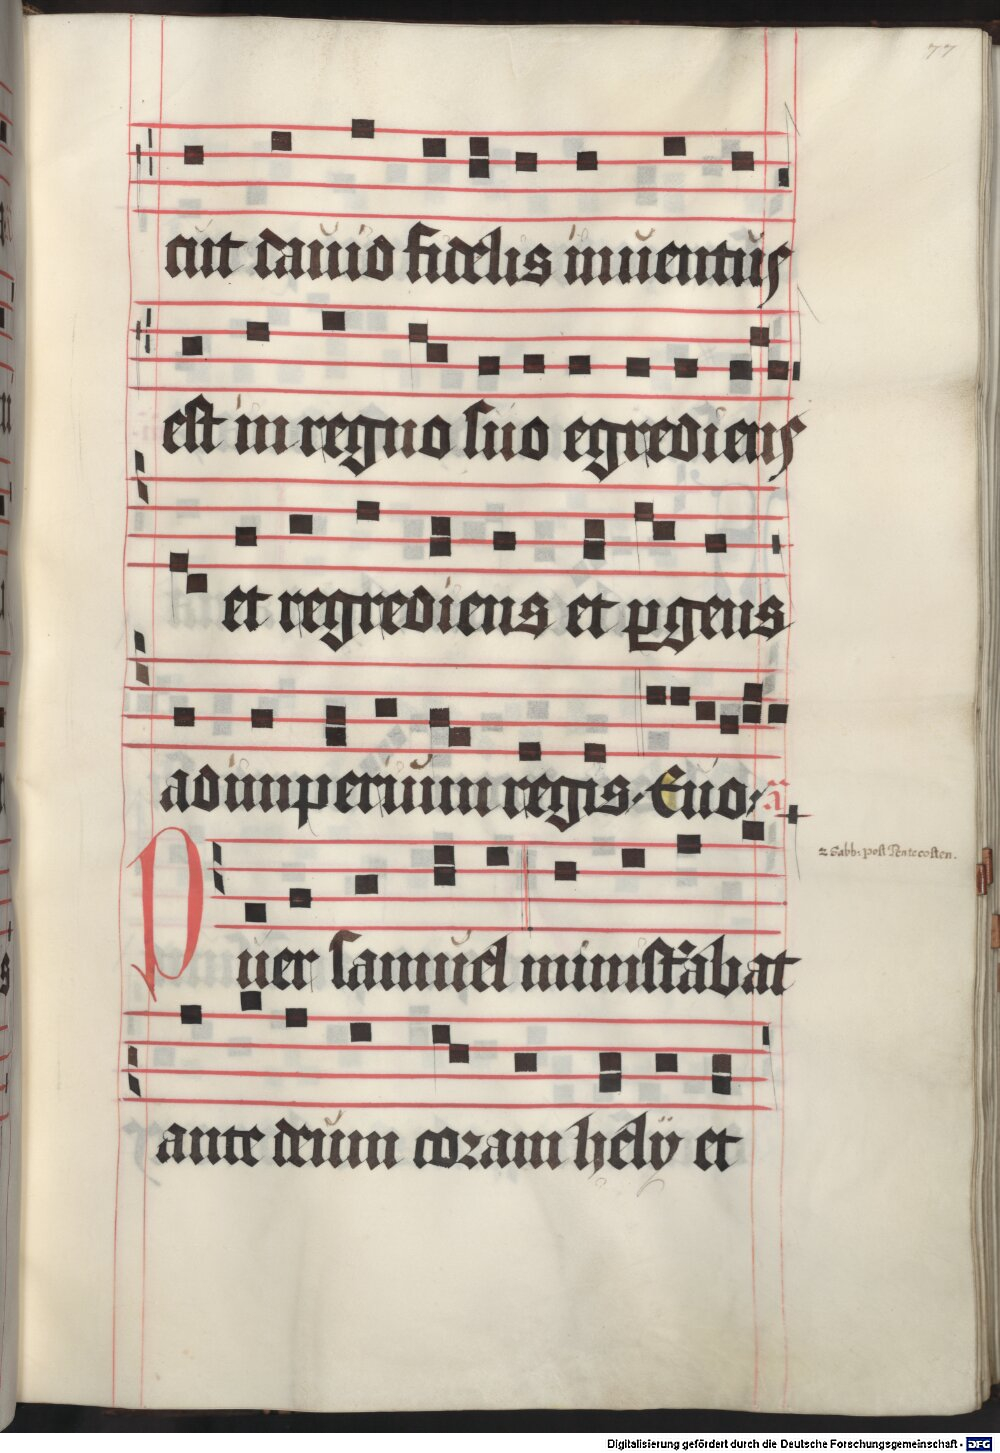 77
cut dauid fidelis inuentus
est in regno suo egrediens
et regrediens et ꝑgens
ad imperium regis. Euo. a
Puer samuel ministrabat
2 Sabb: post Pentecosten.
ante deum coram hely et
Digitalisierung gefördert durch die Deutsche Forschungsgemeinschaft - DFG